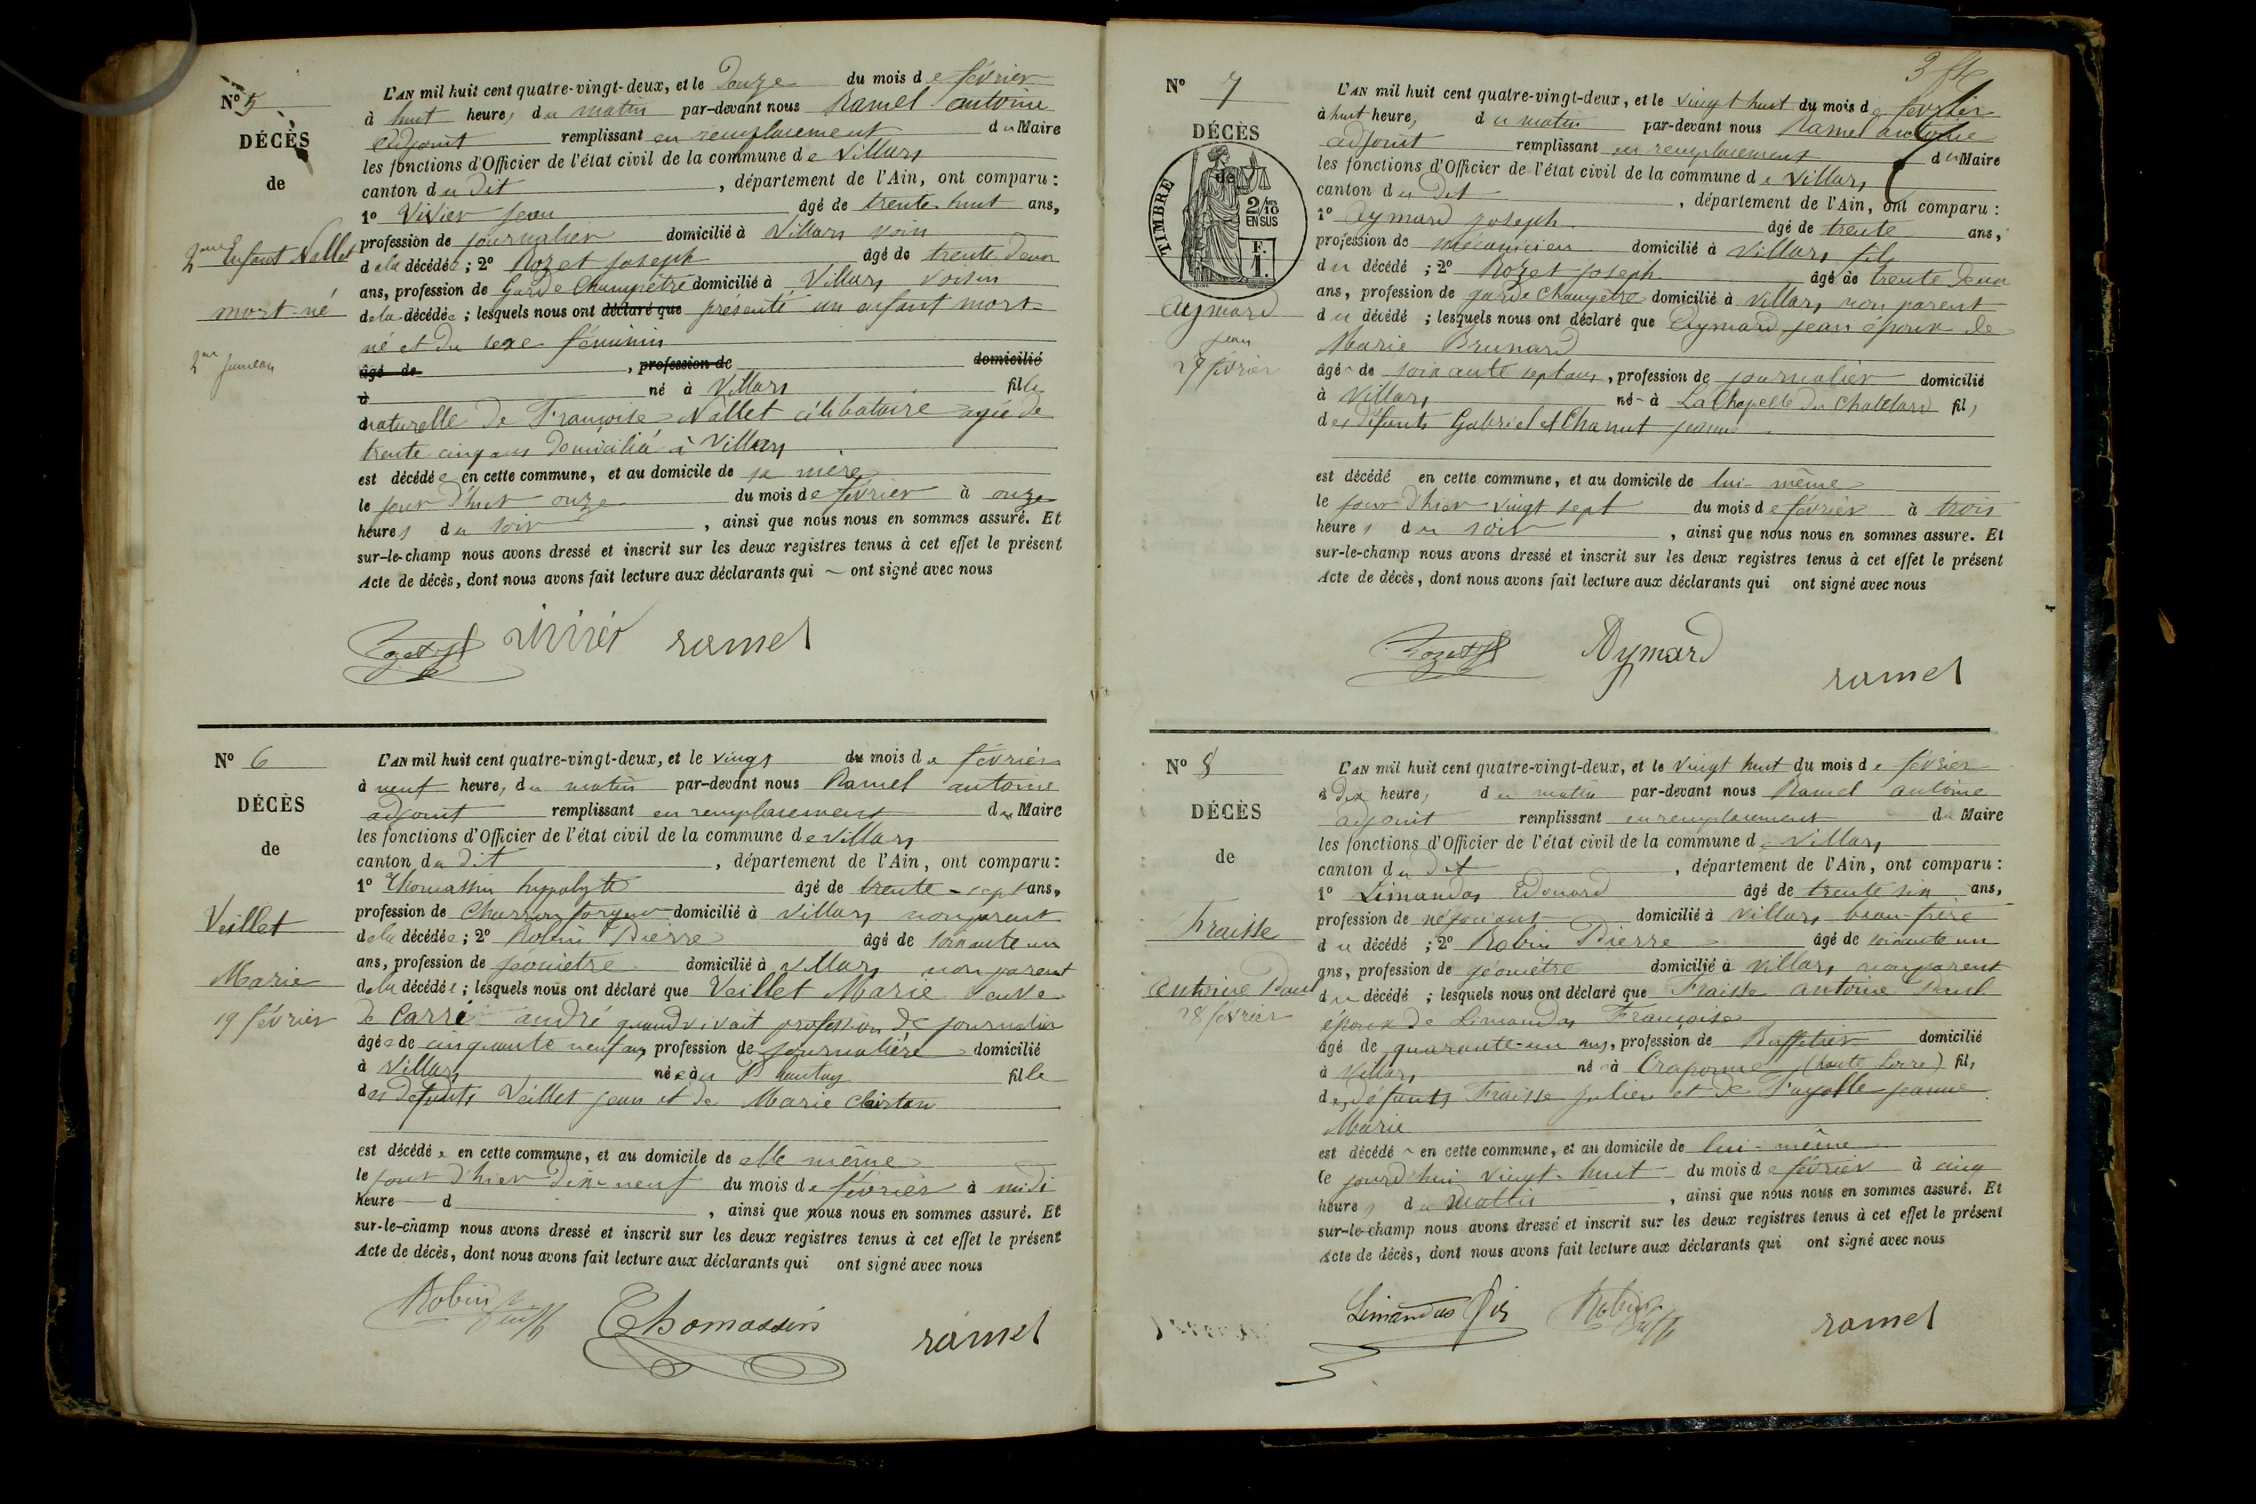 N° 5
DÉCÈS
de
2me Enfant Nallet
mort-né
2me jumeau
L'AN mil huit cent quatre-vingt-deux, et le Douze du mois de février
à huit heures du matin par-devant nous Ramel antoine
adjoint remplissant en remplacement du Maire
les fonctions d'Officier de l'état civil de la commune de Villars
canton du dit, département de l'Ain, ont comparu :
1° Vivier jean âgé de trente-huit ans,
profession de journalier domicilié à Villars voisin
de la décédée ; 2° Rozet joseph âgé de trente deux
ans, profession de Garde Champêtre domicilié à Villars voisin
de la décédée ; lesquels nous ont déclaré que présenté un enfant mort-
né et du sexe féminin
âgé de , profession de domicilié
à né à Villars fille
naturelle de Françoise Nallet célibataire agée de
trente cinq ans domiciliée à Villars
est décédée en cette commune, et au domicile de sa mère
le jour d'hier onze du mois de février à onze
heures du soir, ainsi que nous nous en sommes assuré. Et
sur-le-champ nous avons dressé et inscrit sur les deux registres tenus à cet effet le présent
Acte de décès, dont nous avons fait lecture aux déclarants qui ont signé avec nous
Rozet vivier ramel
N° 6
DÉCÈS
de
Veillet
Marie
19 février
L'AN mil huit cent quatre-vingt-deux, et le vingt du mois de février
à neuf heures, du matin par-devant nous Ramel antoine
adjoint remplissant en remplacement du Maire
les fonctions d'Officier de l'état civil de la commune de Villars
canton du dit, département de l'Ain, ont comparu :
1° Thomassin hyppolyte âgé de trente-sept ans,
profession de Charron forgeur domicilié à Villars non parent
de la décédée ; 2° Robin Pierre âgé de soixante un
ans, profession de géomètre domicilié à Villars non parent
de la décédée ; lesquels nous ont déclaré que Veillet Marie veuve
de Carré andré quand vivait profession de journalier
âgée de cinquante neuf ans, profession de journalière domicilié
à Villars née au Plantay fille
des défunts Veillet jean et de Marie
est décédée en cette commune, et au domicile de elle même
le jour d'hier dix-neuf du mois de février à midi
heure d , ainsi que nous nous en sommes assuré. Et
sur-le-champ nous avons dressé et inscrit sur les deux registres tenus à cet effet le présent
Acte de décès, dont nous avons fait lecture aux déclarants qui ont signé avec nous
Robin Thomassin ramel
N° 7
DÉCÈS
de
TIMBRE
2/10
EN SUS
F.
1.
aymard
jean
27 février
L'AN mil huit cent quatre-vingt-deux, et le vingt huit du mois de février
à huit heures, du matin par-devant nous Ramel antoine
adjoint remplissant en remplacement du Maire
les fonctions d'Officier de l'état civil de la commune de Villars
canton du dit, département de l'Ain, ont comparu :
1° aymard joseph âgé de trente ans,
profession de mécanicien domicilié à Villars fils
du décédé ; 2° Rozet joseph âgé de trente deux
ans, profession de garde Champêtre domicilié à Villars non parent
du décédé ; lesquels nous ont déclaré que aymard jean époux de
Marie Brunard
âgé de soixante sept ans, profession de journalier domicilié
à Villars né à La Chapelle du Chatelard fils
des défunts Gabriel et Chanut jeanne
est décédé en cette commune, et au domicile de lui-même
le jour d'hier vingt sept du mois de février à trois
heures du soir, ainsi que nous nous en sommes assuré. Et
sur-le-champ nous avons dressé et inscrit sur les deux registres tenus à cet effet le présent
Acte de décès, dont nous avons fait lecture aux déclarants qui ont signé avec nous
Rozet Aymard ramel
N° 8
DÉCÈS
de
Fraisse
antoine Paul
28 février
L'AN mil huit cent quatre-vingt-deux, et le vingt huit du mois de février
à dix heures, du matin par-devant nous Ramel antoine
adjoint remplissant en remplacement du Maire
les fonctions d'Officier de l'état civil de la commune de Villars
canton du dit, département de l'Ain, ont comparu :
1° Limandas Edouard âgé de trente six ans,
profession de négociant domicilié à Villars beau frère
du décédé ; 2° Robin Pierre âgé de soixante un
ans, profession de géomètre domicilié à Villars non parent
du décédé ; lesquels nous ont déclaré que Fraisse antoine Paul
époux de Limandas Françoise
âgé de quarante-un ans, profession de Buffetier domicilié
à Villars né à Craponne (haute Loire) fils
des défunts Fraisse julien et de Fayolle jeanne
Marie
est décédé en cette commune, et au domicile de lui-même
le jourd'hui vingt-huit du mois de février à cinq
heures du Mattin, ainsi que nous nous en sommes assuré. Et
sur-le-champ nous avons dressé et inscrit sur les deux registres tenus à cet effet le présent
Acte de décès, dont nous avons fait lecture aux déclarants qui ont signé avec nous
Limandas Robin ramel